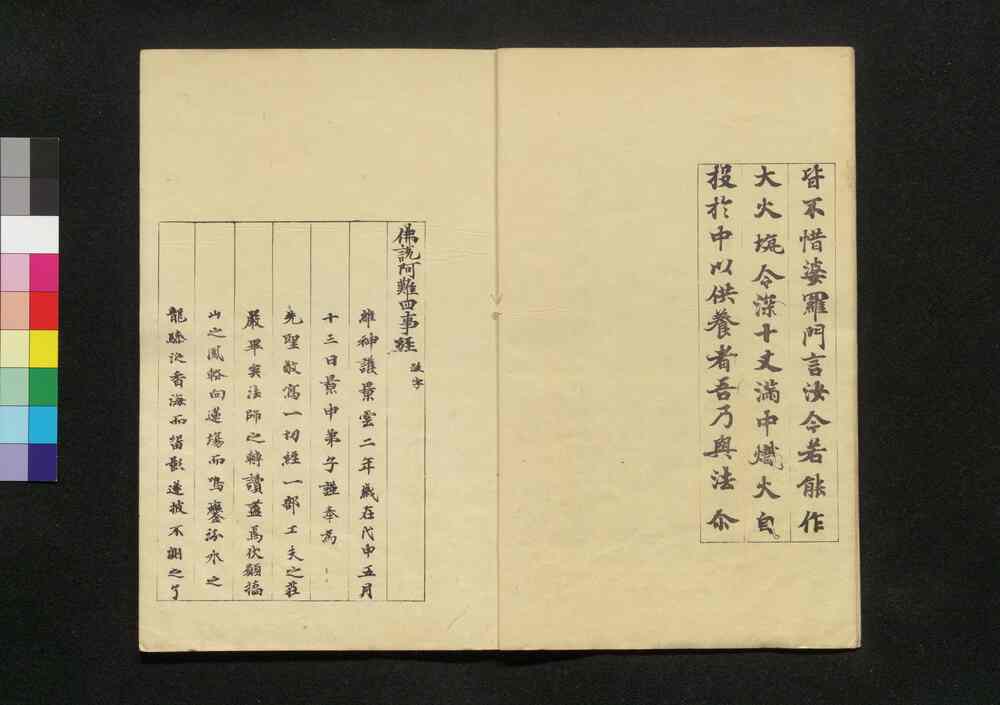 皆不惜婆羅門言汝今若能作
大火坑令深十丈滿中熾火自
投於中以供養者吾乃與法尒
佛説阿難四事經
維神護景雲二年歳在戊申五月
十三日景申弟子謹奉為
先聖敬寫一切經一部工夫之荘
嚴畢矣法師之轉讚盡焉伏願橋
山之鳳輅向蓮場而鳴鑾汾水之
龍驂泛香海而留影遂披不測之了